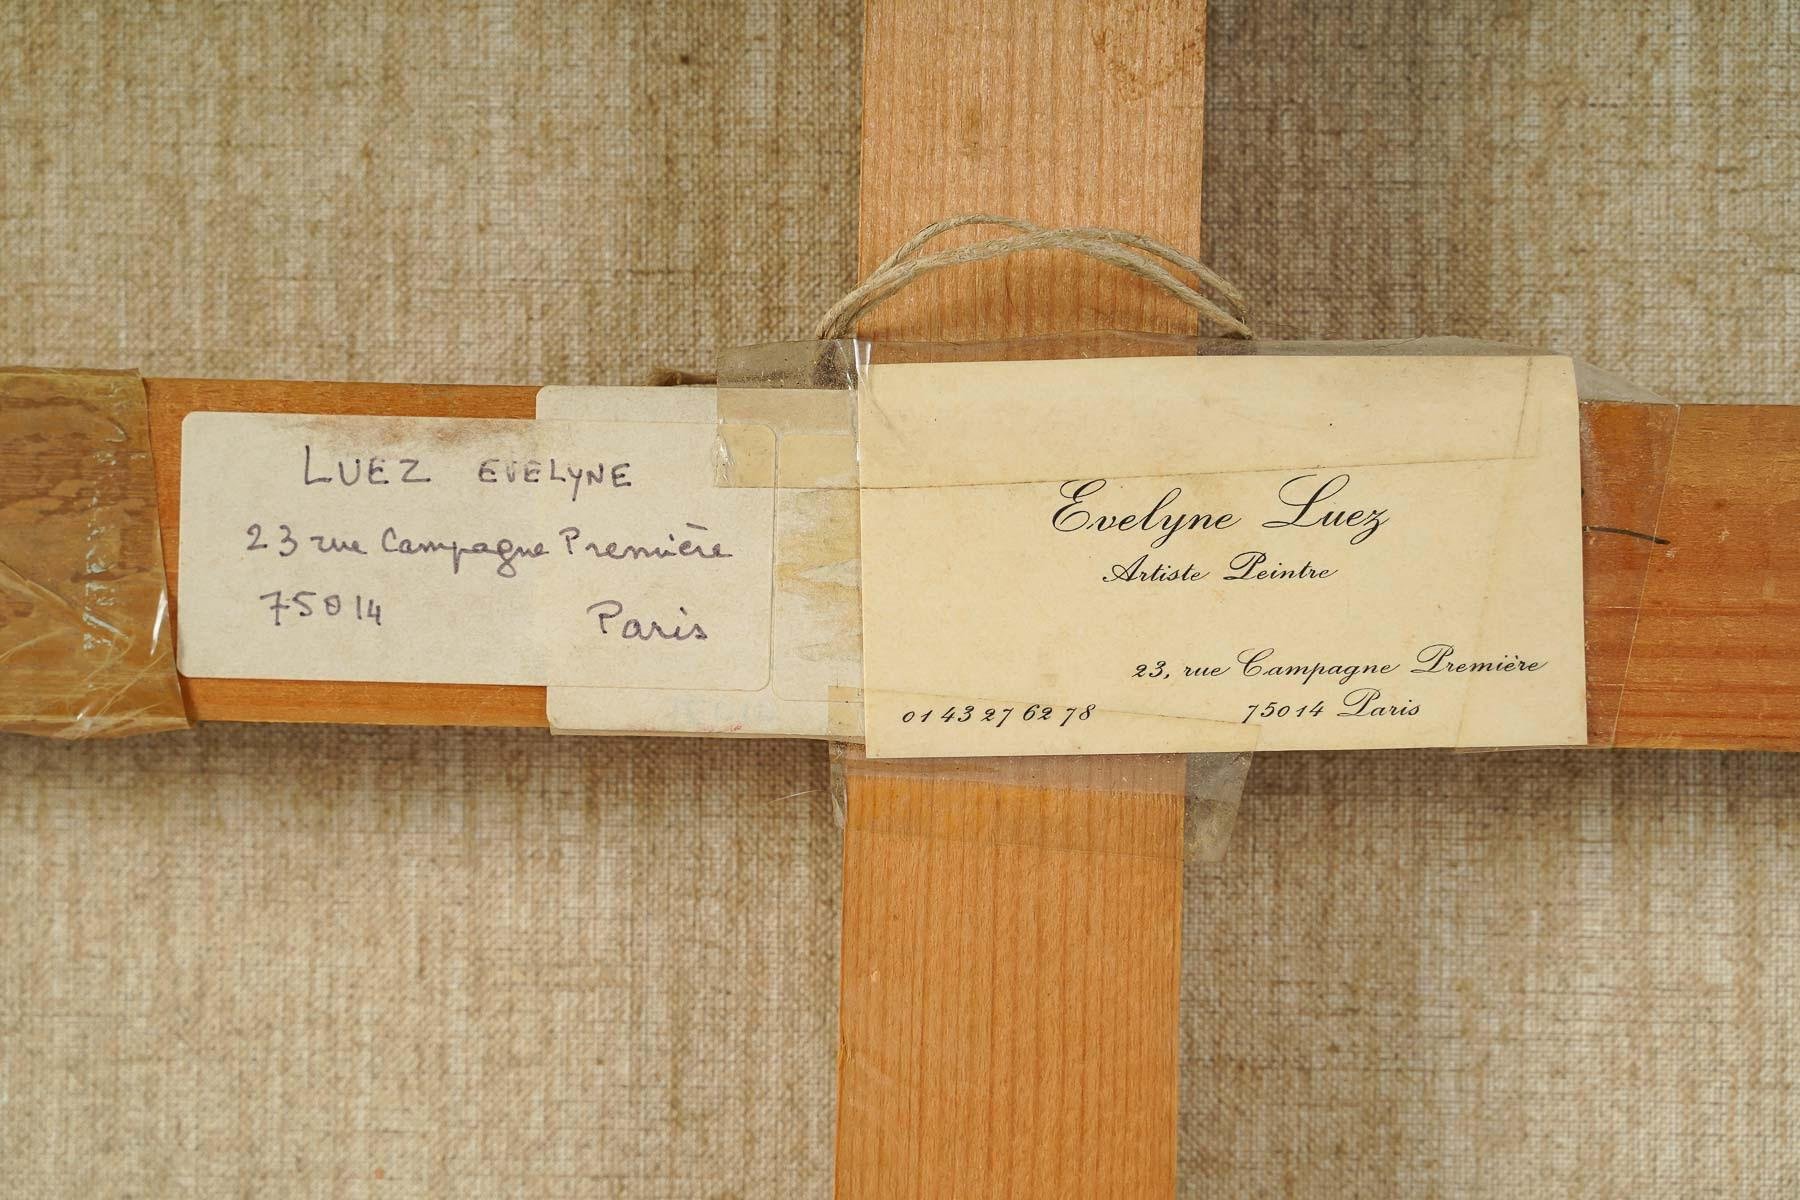 LUEZ EVELYNE
23 rue Campagne Première
75014 Paris
Evelyne Luez
Artiste Peintre
23, rue Campagne Première
01 43 27 62 78 75014 Paris